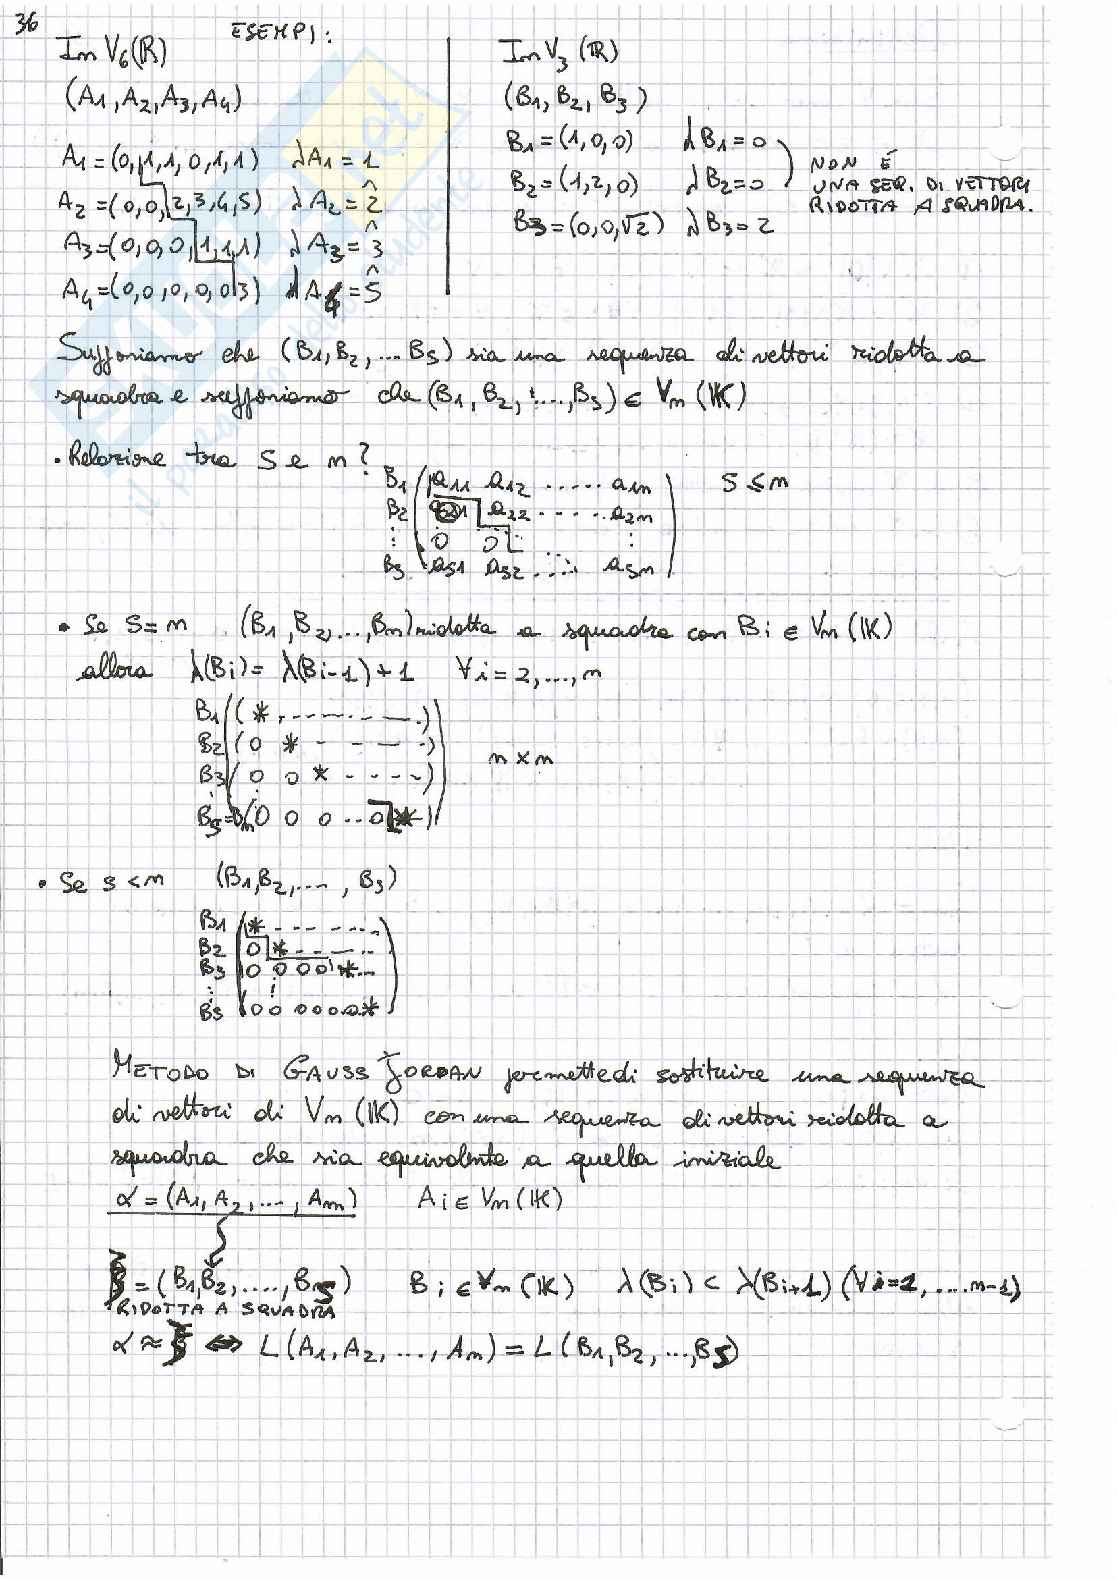 36
ESEMPI:
In V6(ℝ)
(A1, A2, A3, A4)
A1 = (0, 1, 1, 0, 1, 1) λA1 = 1
A2 = (0, 0, 2, 3, 4, 5) λA2 = 2
A3 = (0, 0, 0, 1, 1, 1) λA3 = 3
A4 = (0, 0, 0, 0, 0, 3) λA4 = 5
In V3 (ℝ)
(B1, B2, B3)
B1 = (1, 0, 0) λB1 = 0
B2 = (1, 2, 0) λB2 = 0
B3 = (0, 0, √2) λB3 = 2
NON É
UNA SEQ. DI VETTORI
RIDOTTA A SQUADRA.
Supponiamo che (B1, B2, ... Bs) sia una sequenza di vettori ridotta a
squadra e supponiamo che (B1, B2, ...., Bs) ∈ Vn (K)
• Relazione tra S e n?
B1 a11 a12 ...... a1n S ≤ n
B2 a21 a22 ...... a2n
⋮ 0 0 ⋮
Bs as1 as2 ...... asn
• Se S = n (B1, B2, ..., Bn) ridotta a squadra con Bi ∈ Vn (K)
allora λ(Bi) = λ(Bi-1) + 1 ∀i = 2, ..., n
B1 (* , - - - - - - - .)
B2 (0 * - - - - -)
B3 (0 0 * - - - -) n × n
Bs=Bn (0 0 0 .. 0 *)
• Se s < n (B1, B2, ...., Bs)
B1 * - - - - - - ...
B2 0 * - - - - - ..
B3 0 0 0 0 * - ..
⋮ ⋮
Bs 0 0 0 0 0 0 *
METODO DI GAUSS JORDAN permette di sostituire una sequenza
di vettori di Vn (K) con una sequenza di vettori ridotta a
squadra che sia equivalente a quella iniziale
α = (A1, A2, ..., Am) Ai ∈ Vn (K)
ξ = (B1, B2, ...., Bs) Bi ∈ Vn (K) λ(Bi) < λ(Bi+1) (∀i=1, ....n-1)
RIDOTTA A SQUADRA
α ≈ ξ ⇔ L(A1, A2, ..., Am) = L(B1, B2, ..., Bs)